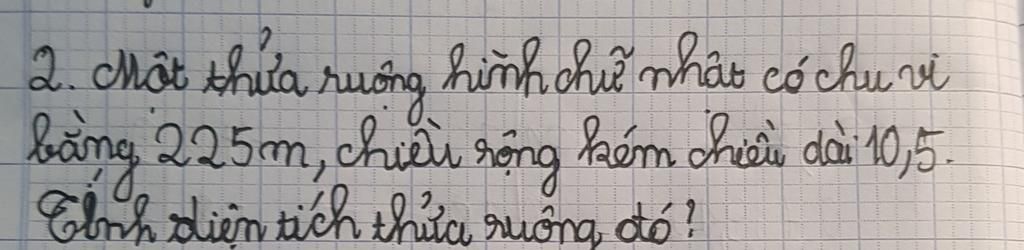 2. Một thửa ruộng hình chữ nhật có chu vi
bằng 225m, chiều rộng kém chiều dài 10,5.
Tính diện tích thửa ruộng đó?